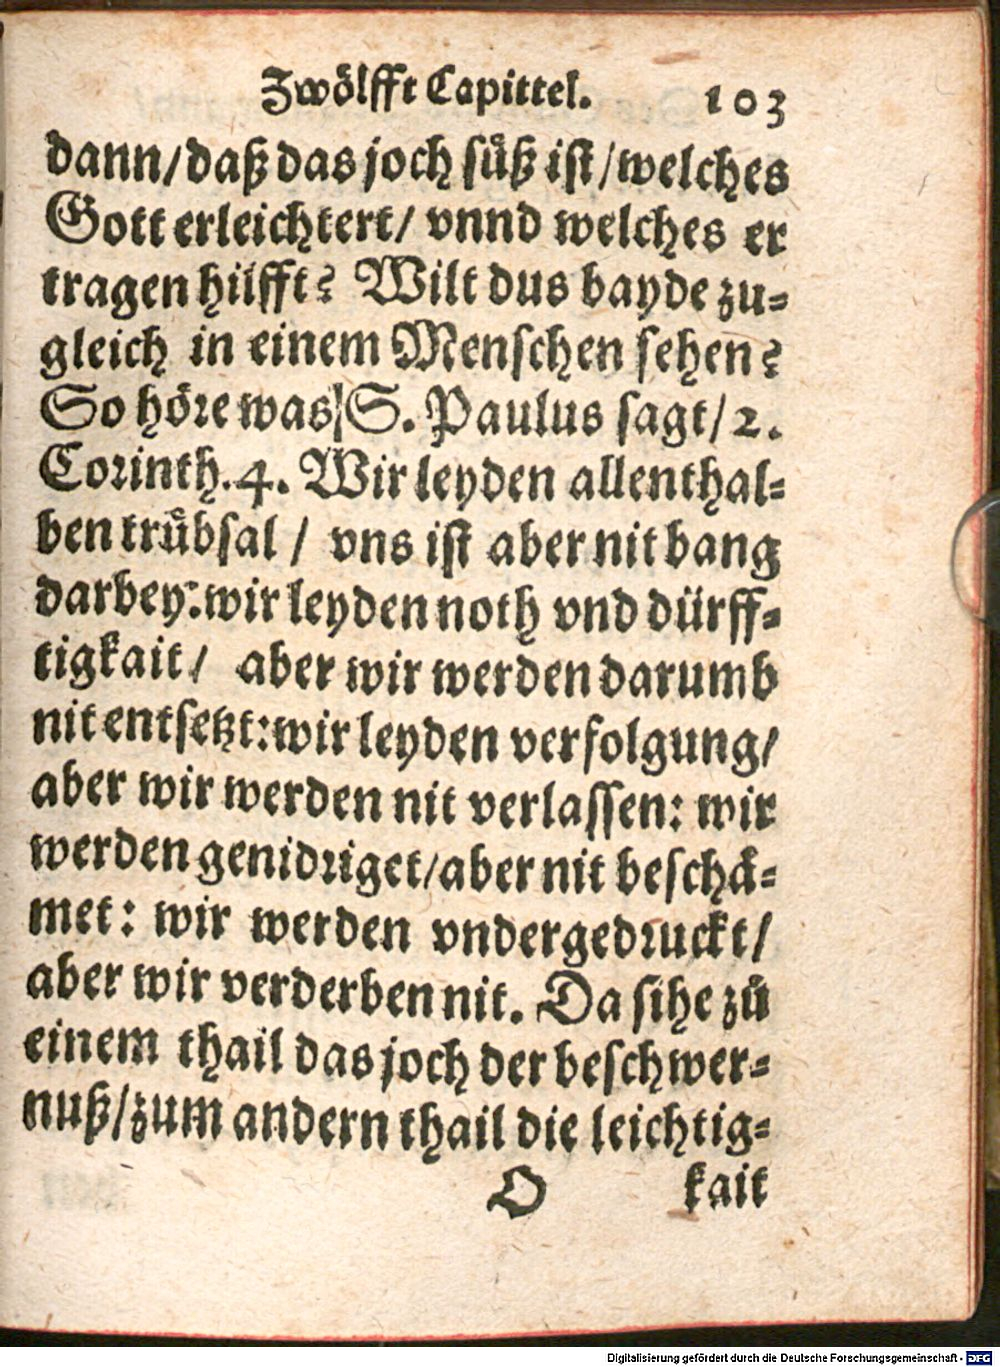 Zwölfft Capittel. 103
dann/daß das joch süß ist/welches
Gott erleichtert/ vnnd welches er
tragen hilfft? Wilt dus bayde zu⸗
gleich in einem Menschen sehen?
So höre was S. Paulus sagt/2.
Corinth.4. Wir leyden allenthal⸗
ben trůbsal / vns ist aber nit bang
darbey: wir leyden noth vnd dürff⸗
tigkait/ aber wir werden darumb
nit entsetzt: wir leyden verfolgung/
aber wir werden nit verlassen: wir
werden genidriget/aber nit beschaͤ⸗
met: wir werden vndergedruckt/
aber wir verderben nit. Da sihe zů
einem thail das joch der beschwer⸗
nuß/zum andern thail die leichtig⸗
O kait
Digitalisierung gefördert durch die Deutsche Forschungsgemeinschaft - DFG